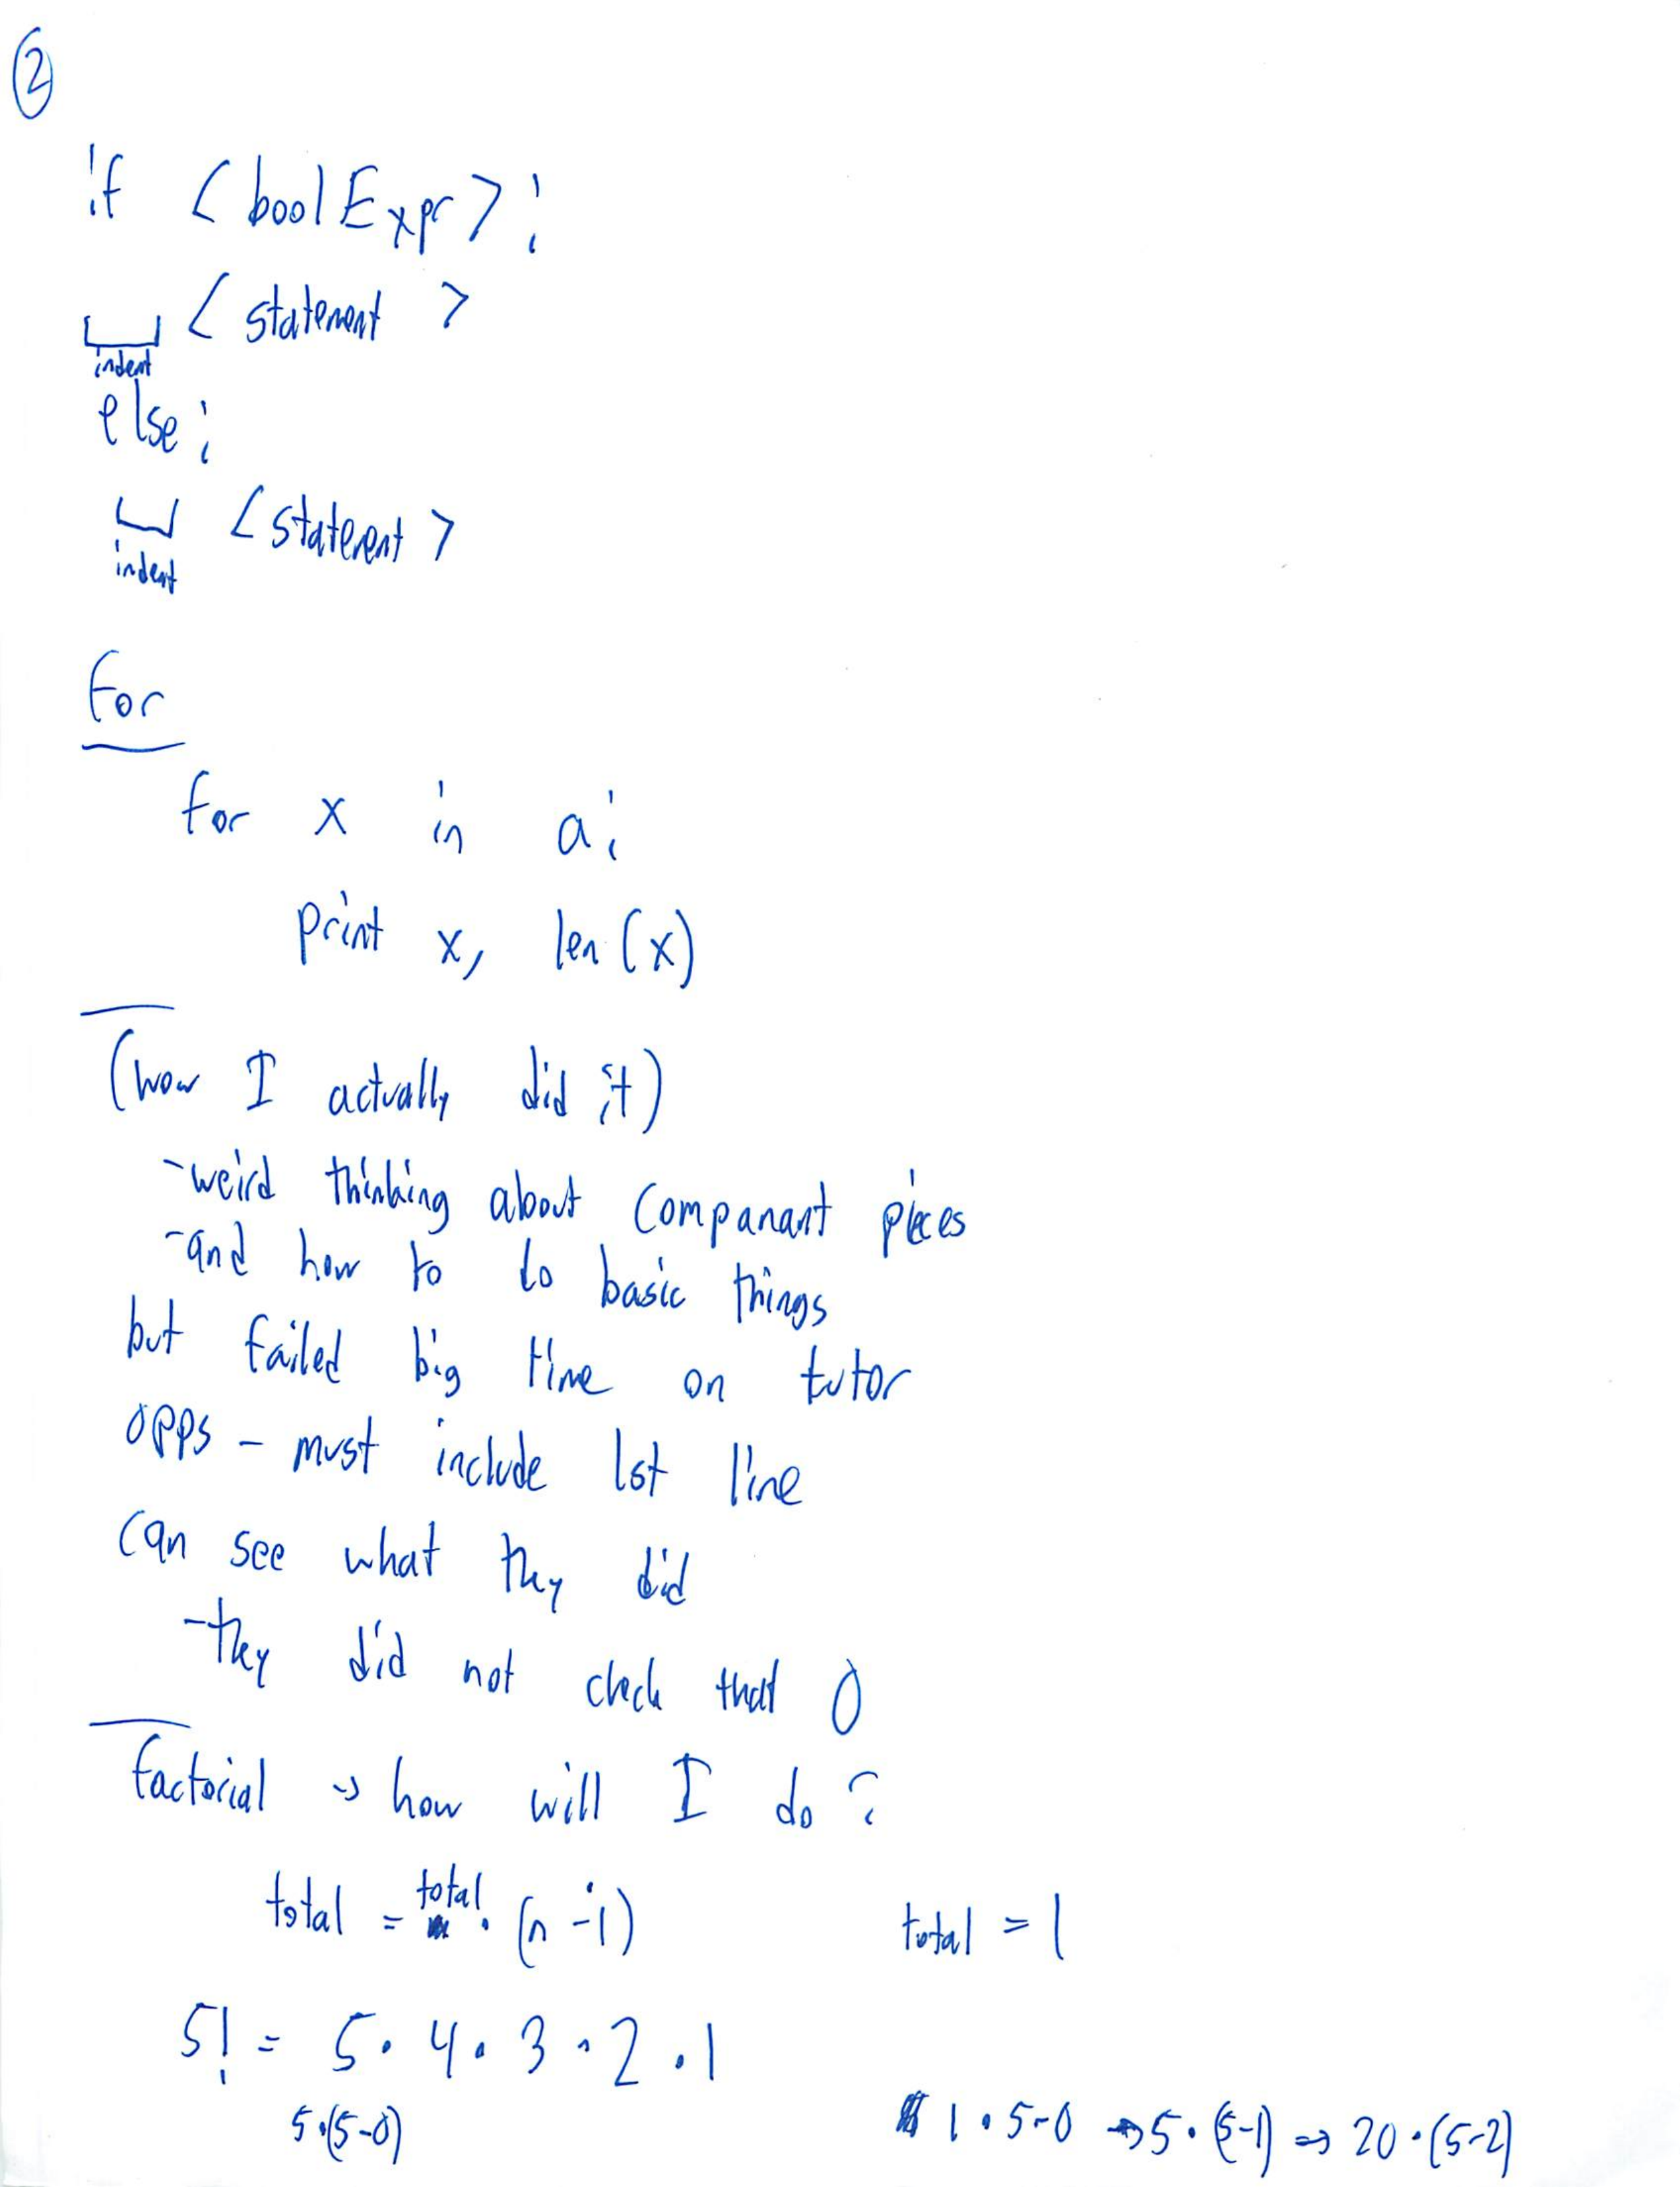 2
if <boolExpr>:
<statement>
indent
else:
<statement>
indent
for
for x in a:
print x, len(x)
(how I actually did it)
-weird thinking about companant pieces
-and how to do basic things
but failed big time on tutor
opps - must include 1st line
can see what they did
-they did not check that 0
factorial → how will I do?
total = total · (n-i) total = 1
5! = 5 · 4 · 3 · 2 · 1
5·(5-0) 1 · 5-0 → 5 · (5-1) → 20 · (5-2)